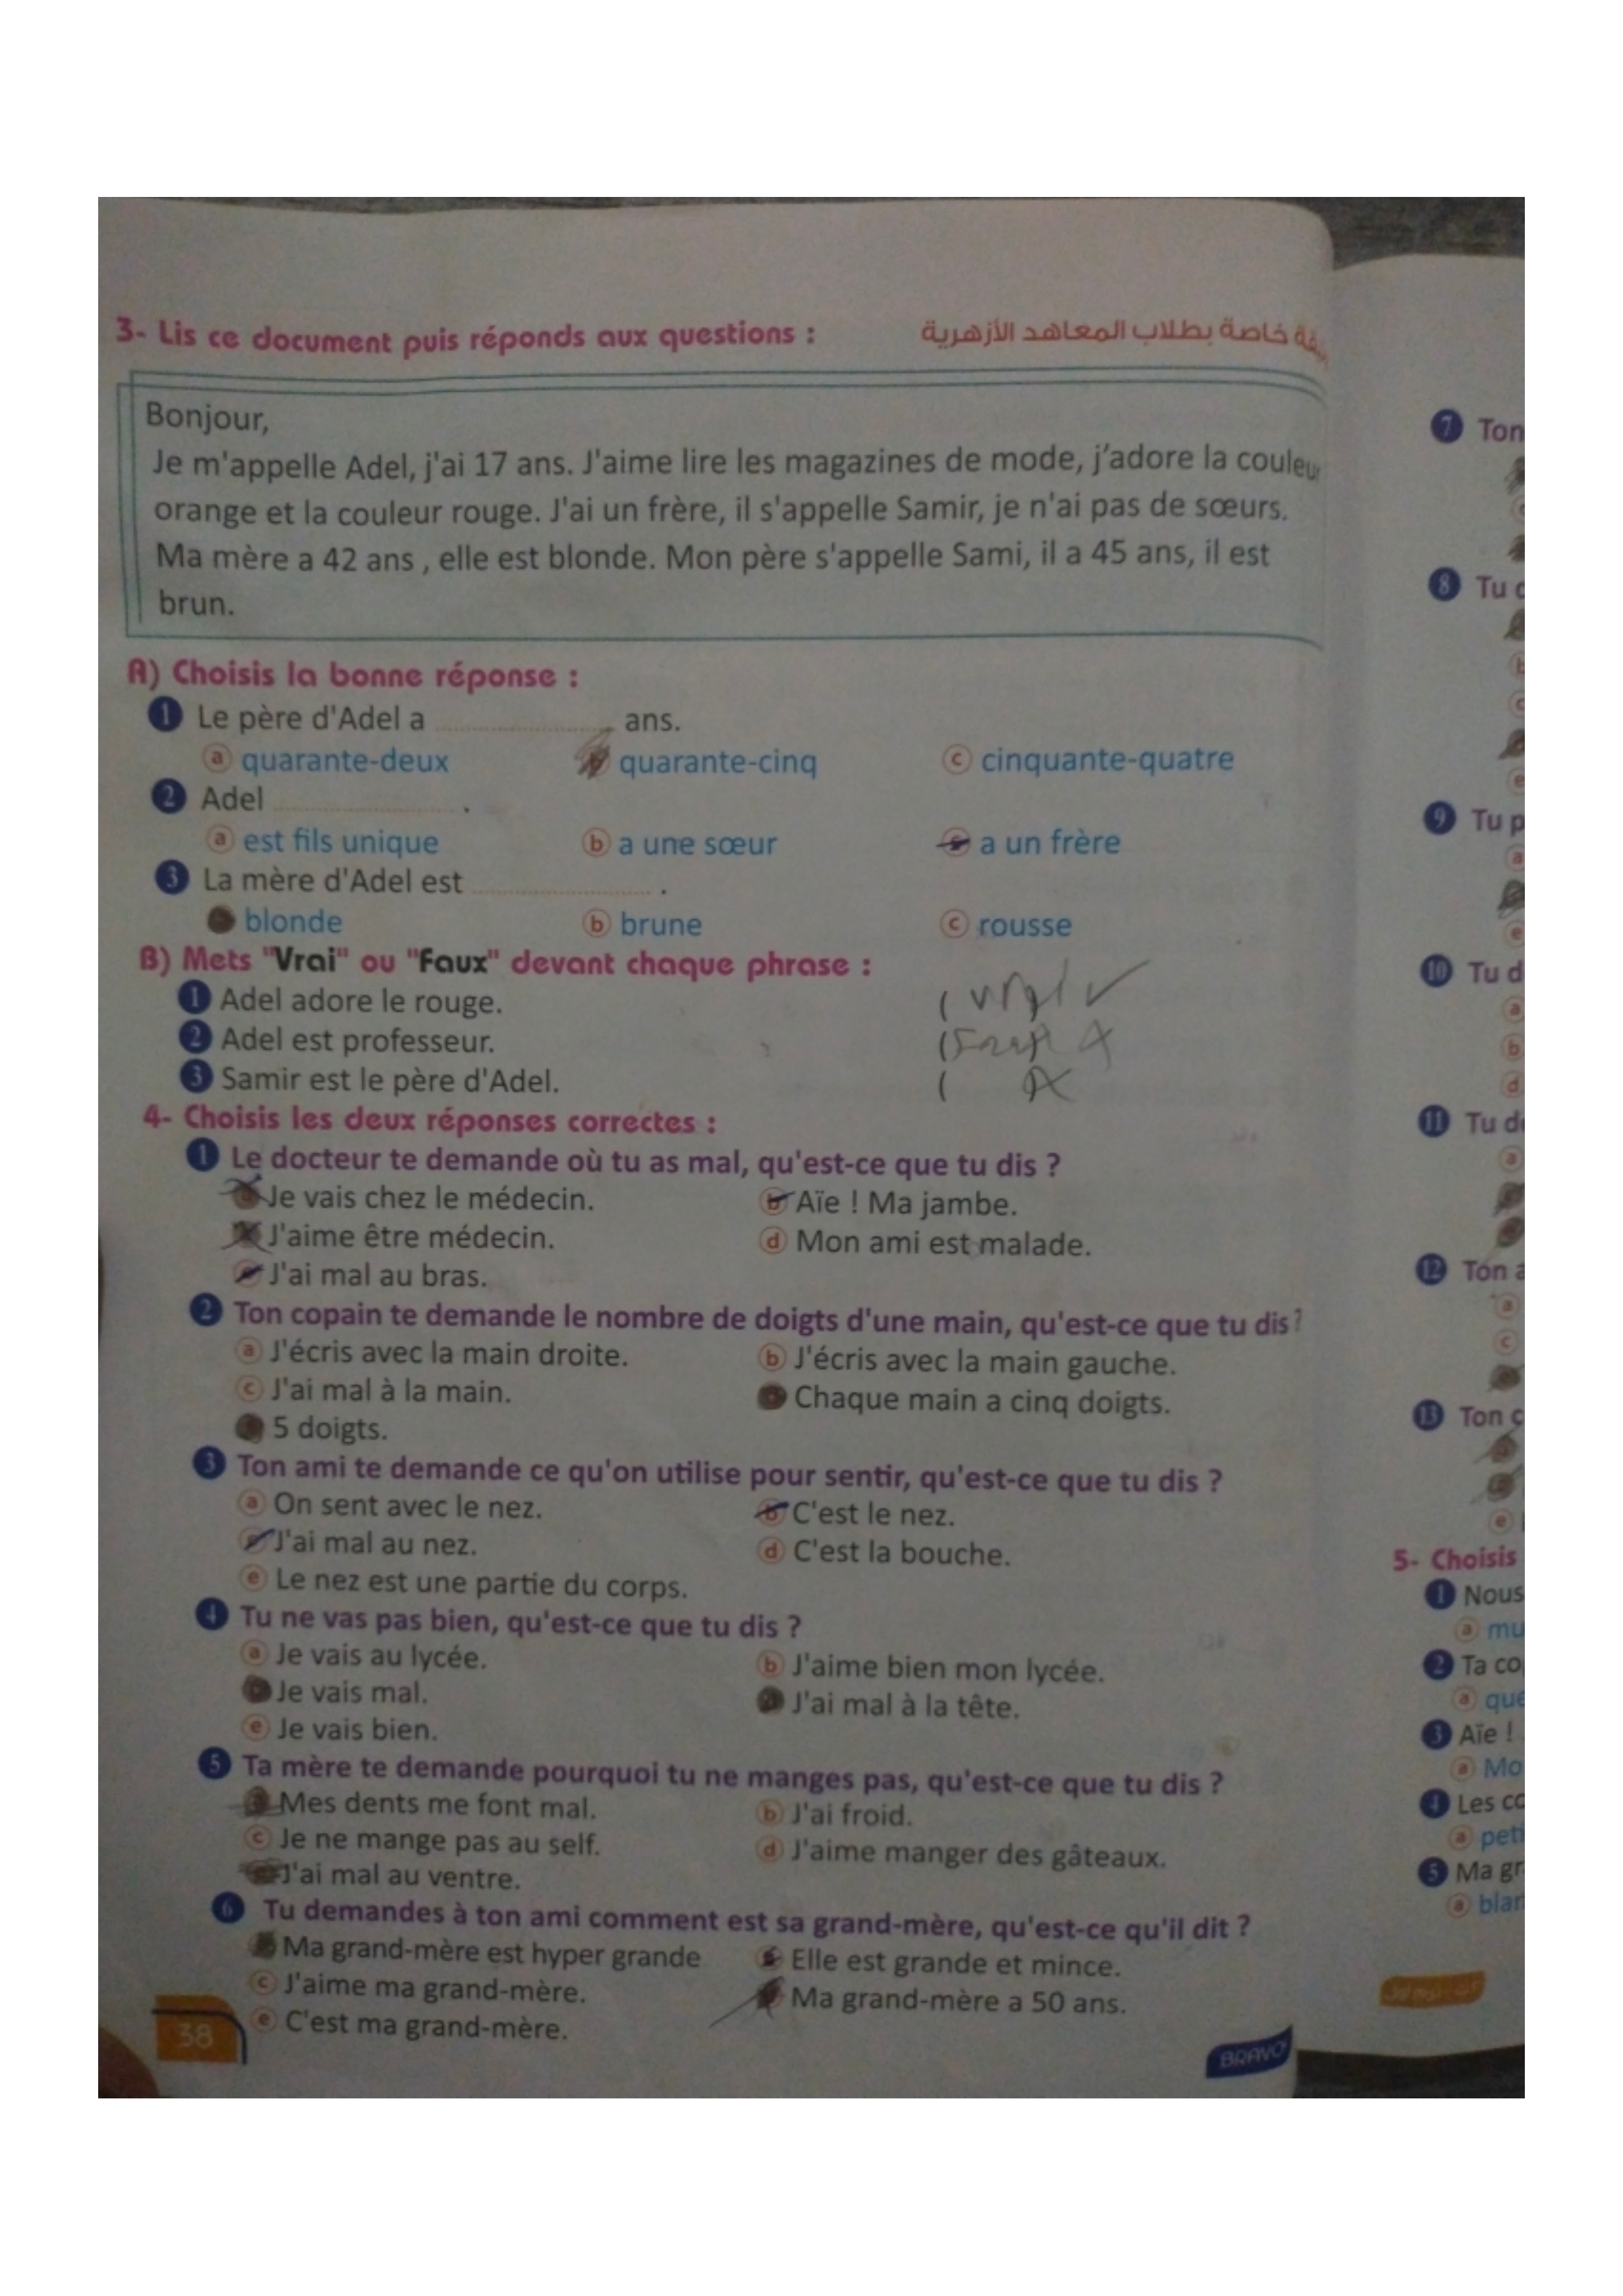 3- Lis ce document puis réponds aux questions :
خاصة بطلاب المعاهد الأزهرية
Bonjour,
Je m'appelle Adel, j'ai 17 ans. J'aime lire les magazines de mode, j'adore la couleur
orange et la couleur rouge. J'ai un frère, il s'appelle Samir, je n'ai pas de sœurs.
Ma mère a 42 ans , elle est blonde. Mon père s'appelle Sami, il a 45 ans, il est
brun.
A) Choisis la bonne réponse :
1 Le père d'Adel a .................... ans.
a quarante-deux b quarante-cinq c cinquante-quatre
2 Adel .................... .
a est fils unique b a une sœur c a un frère
3 La mère d'Adel est .................... .
blonde b brune c rousse
B) Mets "Vrai" ou "Faux" devant chaque phrase :
1 Adel adore le rouge. ( vrai ) ✓
2 Adel est professeur. (
3 Samir est le père d'Adel. (
4- Choisis les deux réponses correctes :
1 Le docteur te demande où tu as mal, qu'est-ce que tu dis ?
Je vais chez le médecin. b Aïe ! Ma jambe.
J'aime être médecin. d Mon ami est malade.
e J'ai mal au bras.
2 Ton copain te demande le nombre de doigts d'une main, qu'est-ce que tu dis ?
a J'écris avec la main droite. b J'écris avec la main gauche.
c J'ai mal à la main. Chaque main a cinq doigts.
5 doigts.
3 Ton ami te demande ce qu'on utilise pour sentir, qu'est-ce que tu dis ?
a On sent avec le nez. b C'est le nez.
c J'ai mal au nez. d C'est la bouche.
e Le nez est une partie du corps.
4 Tu ne vas pas bien, qu'est-ce que tu dis ?
a Je vais au lycée. b J'aime bien mon lycée.
Je vais mal. J'ai mal à la tête.
e Je vais bien.
5 Ta mère te demande pourquoi tu ne manges pas, qu'est-ce que tu dis ?
a Mes dents me font mal. b J'ai froid.
c Je ne mange pas au self. d J'aime manger des gâteaux.
e J'ai mal au ventre.
6 Tu demandes à ton ami comment est sa grand-mère, qu'est-ce qu'il dit ?
Ma grand-mère est hyper grande Elle est grande et mince.
c J'aime ma grand-mère. Ma grand-mère a 50 ans.
e C'est ma grand-mère.
38
BRAVO
7 Ton
8 Tu
b
c
e
9 Tu p
a
e
10 Tu d
a
b
d
11 Tu d
a
12 Ton a
a
c
13 Ton
e
5- Choisis
1 Nous
a mu
2 Ta co
a que
3 Aïe !
a Mo
4 Les co
a peti
5 Ma gr
a blan